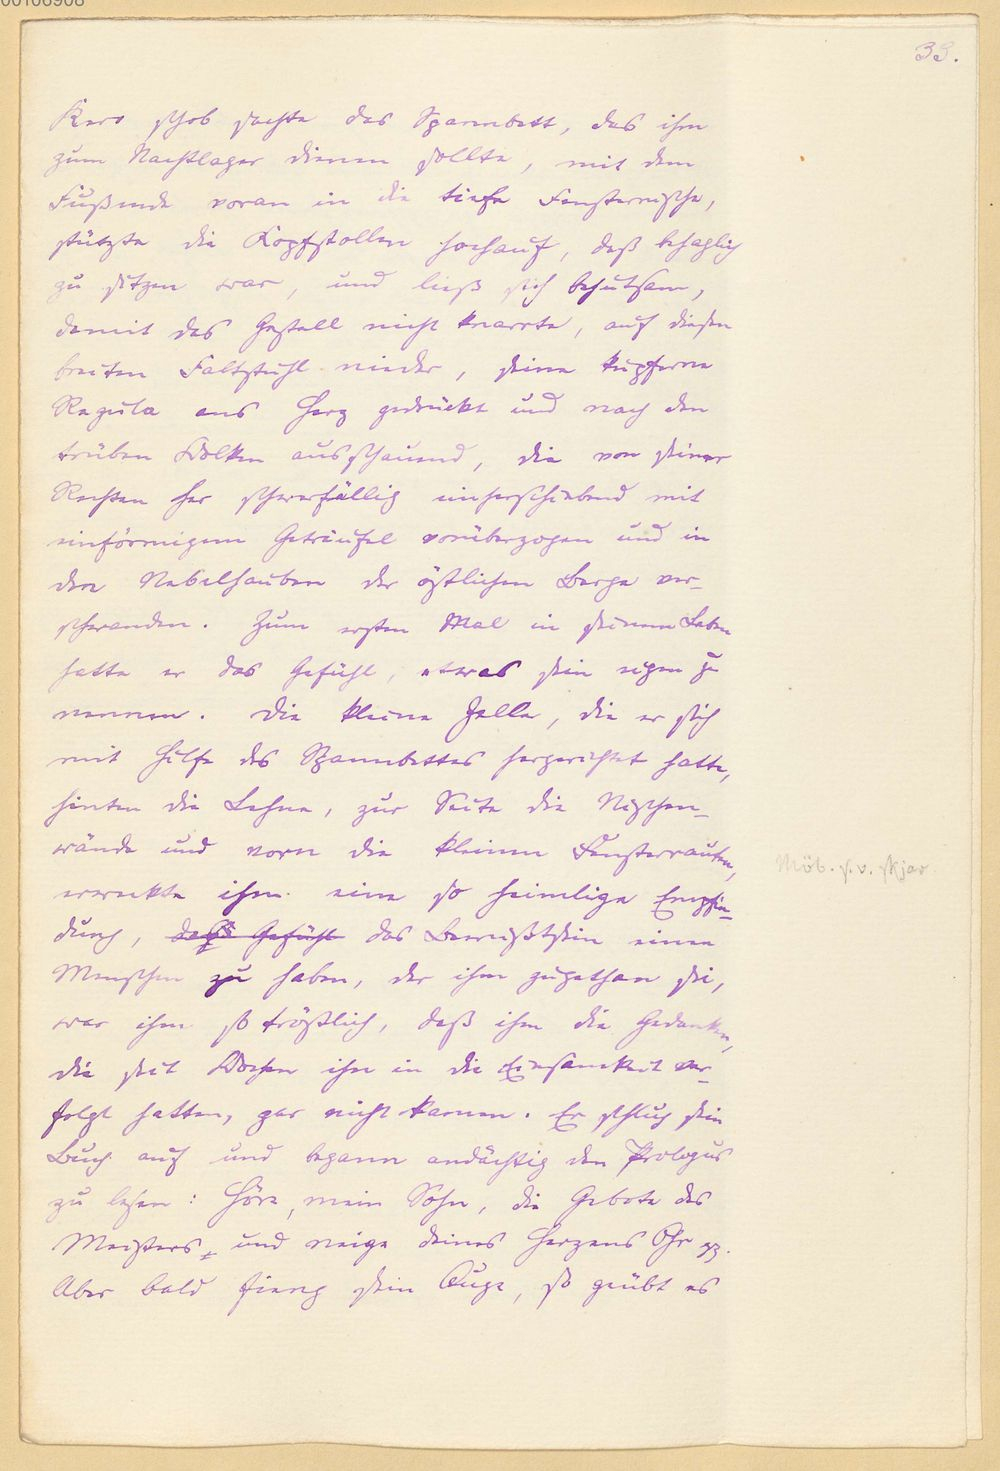 00106908
33.
Kero schob sachte das Spannbett, das ihm
zum Nachtlager dienen sollte, mit dem
Fußende voran in die tiefe Fensternische,
stützte die Kopfstollen hochauf, daß behaglich
zu sitzen war, und ließ sich behutsam,
damit das Gestell nicht knarrte, auf diesen
breiten Faltstuhl nieder, seine kupferne
Regula ans Herz gedrückt und nach den
trüben Wolken ausschauend, die von seiner
Rechten her schwerfällig einherschiebend mit
einförmigem Geträufel vorüberzogen und in
den Nebelhauben der östlichen Berge ver-
schwanden. Zum ersten Mal in seinem Leben
hatte er das Gefühl, etwas sein eigen zu
nennen. Die kleine Zelle, die er sich
mit Hilfe des Spannbettes hergerichtet hatte,
hinten die Lehne, zur Seite die Nischen-
wände und vorn die kleinen Fensterrauten,
erweckte ihm eine so heimelige Empfin-
dung, das Gefühl das Bewußtsein einen
Menschen zu haben, der ihm zugethan sei,
war ihm so tröstlich, daß ihm die Gedanken,
die seit Wochen ihn in die Einsamkeit ver-
folgt hatten, gar nicht kamen. Er schlug sein
Buch auf und begann andächtig den Prologus
zu lesen: Höre, mein Sohn, die Gebote des
Meisters, und neige deines Herzens Ohr
Aber bald fieng sein Auge, so geübt es
Möb. s. v.